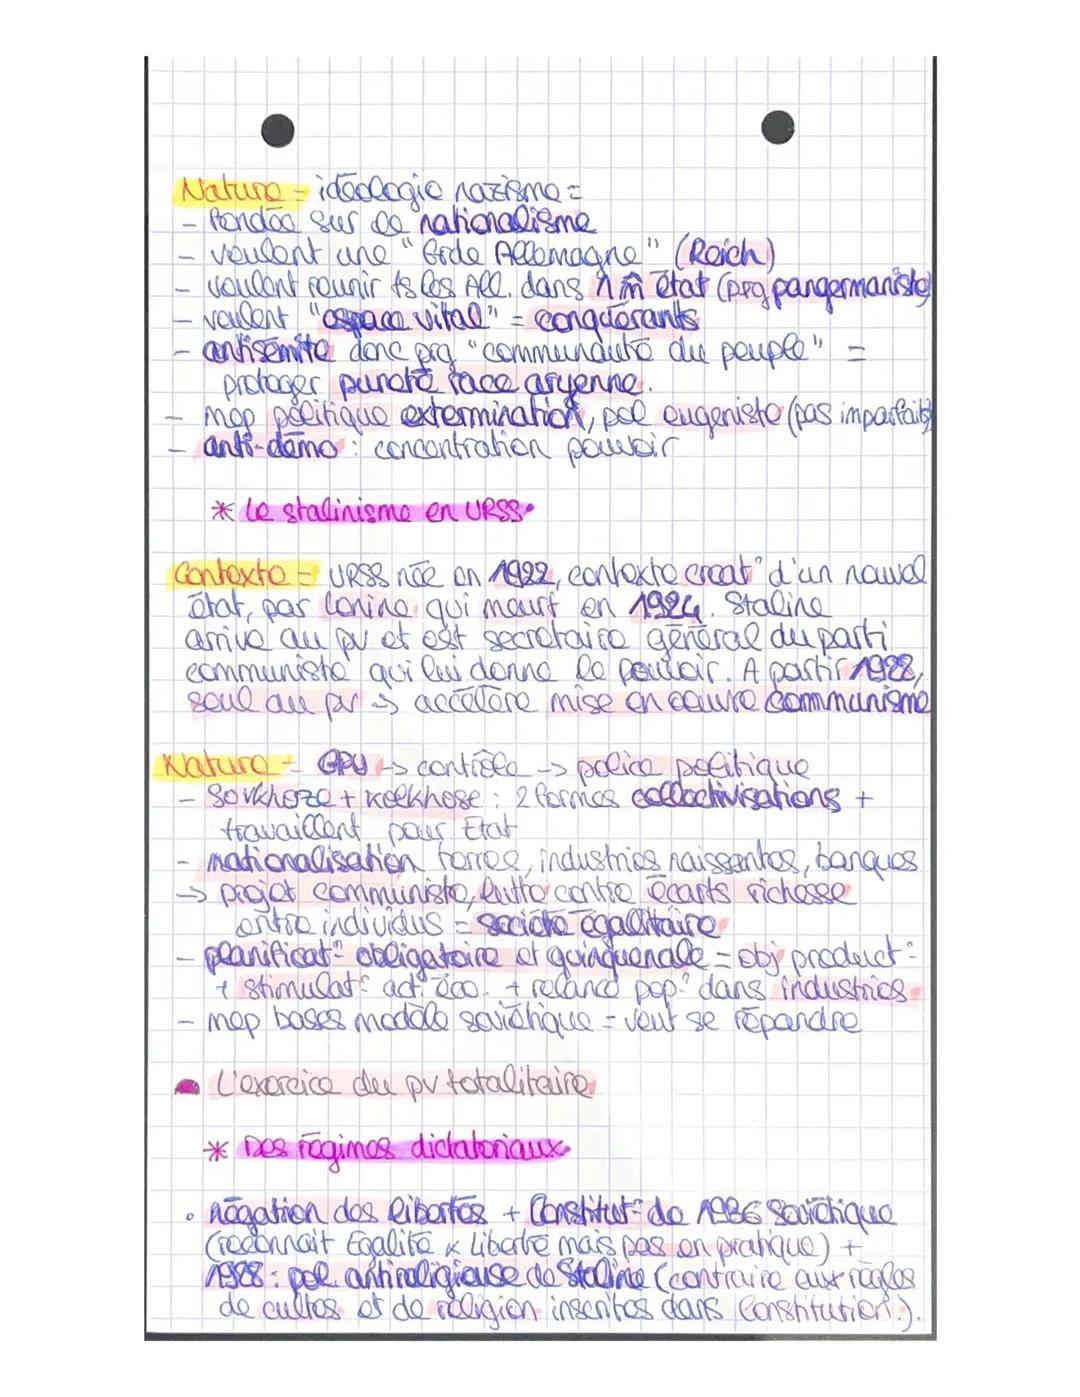 Nature = idéologie nazisme =
- fondée sur le nationalisme
- veulent une "Grde Allemagne" (Reich)
- veulent réunir ts les All. dans 1 m̂ État (prg pangermaniste)
- veulent "espace vital" = conquérants
- antisémite donc prg "communauté du peuple" =
protéger pureté race aryenne.
- mep politique extermination, pol eugéniste (pas imparfaits)
- anti-démo : concentration pouvoir
* Le stalinisme en URSS.
Contexte = URSS née en 1922, contexte creat° d'un nouvel
état, par Lénine qui meurt en 1924. Staline
arrive au pv et est secrétaire général du parti
communiste qui lui donne le pouvoir. A partir 1928,
seul au pv → accélère mise en oeuvre communisme
Nature - GPU → contrôle → police politique
- Sovkhoze + kolkhose : 2 formes collectivisations +
travaillent pour État
- nationalisation terres, industries naissantes, banques
→ projet communiste, lutte contre écarts richesse
entre individus = société égalitaire
- planificat° obligatoire et quinquennale = obj product°
+ stimulat° act° éco. + relance pop° dans industries.
- mep bases modèle soviétique = veut se répandre
L'exercice du pv totalitaire
* Des régimes dictatoriaux.
• négation des libertés + Constitut° de 1936 Soviétique
(reconnait Égalité x Liberté mais pas en pratique) +
1928 : pol. antireligieuse de Staline (contraire aux règles
de cultes et de religion inscrites dans Constitution).